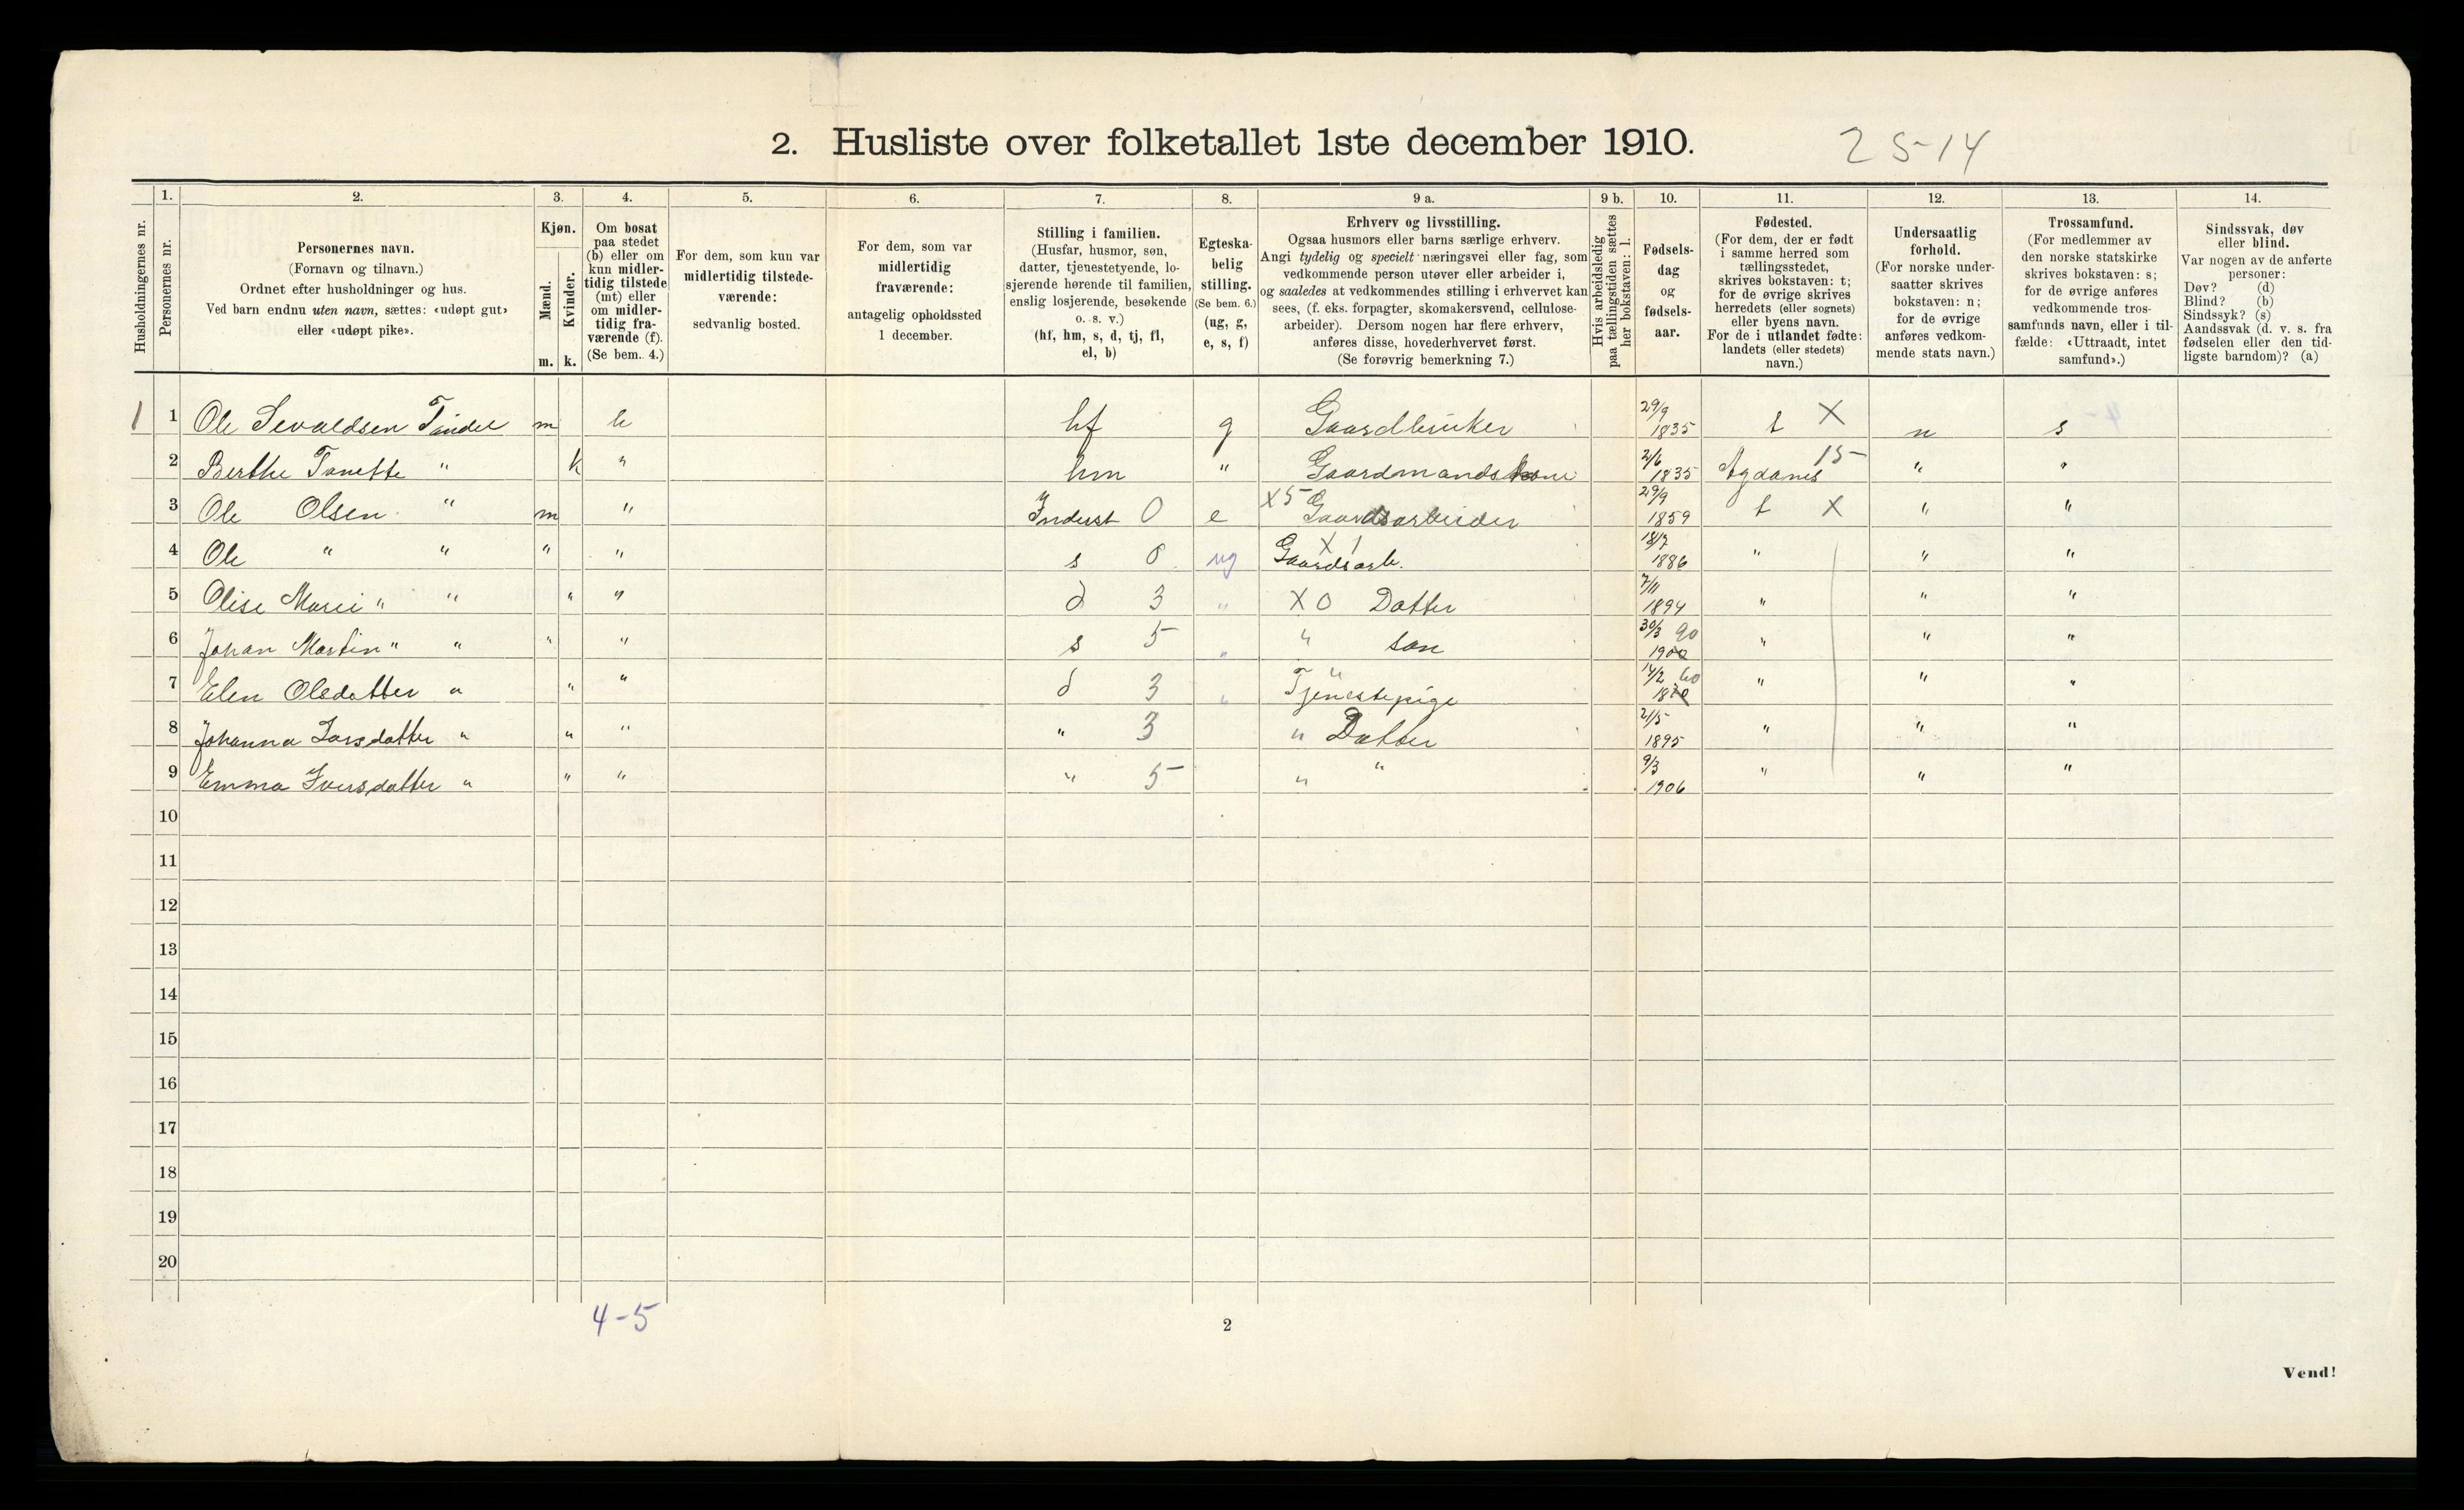 2. Husliste over folketallet 1ste december 1910. 25-14
1. 2. 3. 4. 5. 6. 7. 8. 9 a. 9 b. 10. 11. 12. 13. 14.
Husholdningernes nr.
Personernes nr.
Personernes navn.
(Fornavn og tilnavn.)
Ordnet efter husholdninger og hus.
Ved barn endnu uten navn, sættes: «udøpt gut»
eller «udøpt pike».
Kjøn.
Mænd.
Kvinder.
m. k.
Om bosat
paa stedet
(b) eller om
kun midler-
tidig tilstede
(mt) eller
om midler-
tidig fra-
værende (f).
(Se bem. 4.)
For dem, som kun var
midlertidig tilstede-
værende:
sedvanlig bosted.
For dem, som var
midlertidig
fraværende:
antagelig opholdssted
1 december.
Stilling i familien.
(Husfar, husmor, søn,
datter, tjenestetyende, lo-
sjerende hørende til familien,
enslig losjerende, besøkende
o. s. v.)
(hf, hm, s, d, tj, fl,
el, b)
Egteska-
belig
stilling.
(Se bem. 6.)
(ug, g,
e, s, f)
Erhverv og livsstilling.
Ogsaa husmors eller barns særlige erhverv.
Angi tydelig og specielt næringsvei eller fag, som
vedkommende person utøver eller arbeider i,
og saaledes at vedkommendes stilling i erhvervet kan
sees, (f. eks. forpagter, skomakersvend, cellulose-
arbeider). Dersom nogen har flere erhverv,
anføres disse, hovederhvervet først.
(Se forøvrig bemerkning 7.)
Hvis arbeidsledig
paa tællingstiden sættes
her bokstaven: l.
Fødsels-
dag
og
fødsels-
aar.
Fødested.
(For dem, der er født
i samme herred som
tællingsstedet,
skrives bokstaven: t;
for de øvrige skrives
herredets (eller sognets)
eller byens navn.
For de i utlandet fødte:
landets (eller stedets)
navn.)
Undersaatlig
forhold.
(For norske under-
saatter skrives
bokstaven: n;
for de øvrige
anføres vedkom-
mende stats navn.)
Trossamfund.
(For medlemmer av
den norske statskirke
skrives bokstaven: s;
for de øvrige anføres
vedkommende tros-
samfunds navn, eller i til-
fælde: «Uttraadt, intet
samfund».)
Sindssvak, døv
eller blind.
Var nogen av de anførte
personer:
Døv? (d)
Blind? (b)
Sindssyk? (s)
Aandssvak (d. v. s. fra
fødselen eller den tid-
ligste barndom)? (a)
1 1 Ole Sevaldsen m b hf g Gaardbruker 29/9 1835 t X n s
2 Berthe " k " hm " Gaardmandskone 2/6 1835 Agdanes 15 " "
3 Ole Olsen " m " Inderst 0 e X5 Gaardsarbeider 29/9 1859 t X " "
4 Ole " " " " s 0 ug X 1 Gaardsarb. 18/7 1886 " " "
5 Olise Marie " " " " d 3 " X 0 Datter 7/11 1894 " " "
6 Johan Martin " " " " s 5 " " søn 30/3 90 1900 " " "
7 Elen Olsdatter " " " d 3 " " Tjenestepige 14/2 60 1870 " " "
8 Johanna Larsdatter " " " " 3 " Datter 21/5 1895 " " "
9 Emma Iversdatter " " " " 5 " " 9/3 1906 " " "
10
11
12
13
14
15
16
17
18
19
20
4-5
2
Vend!